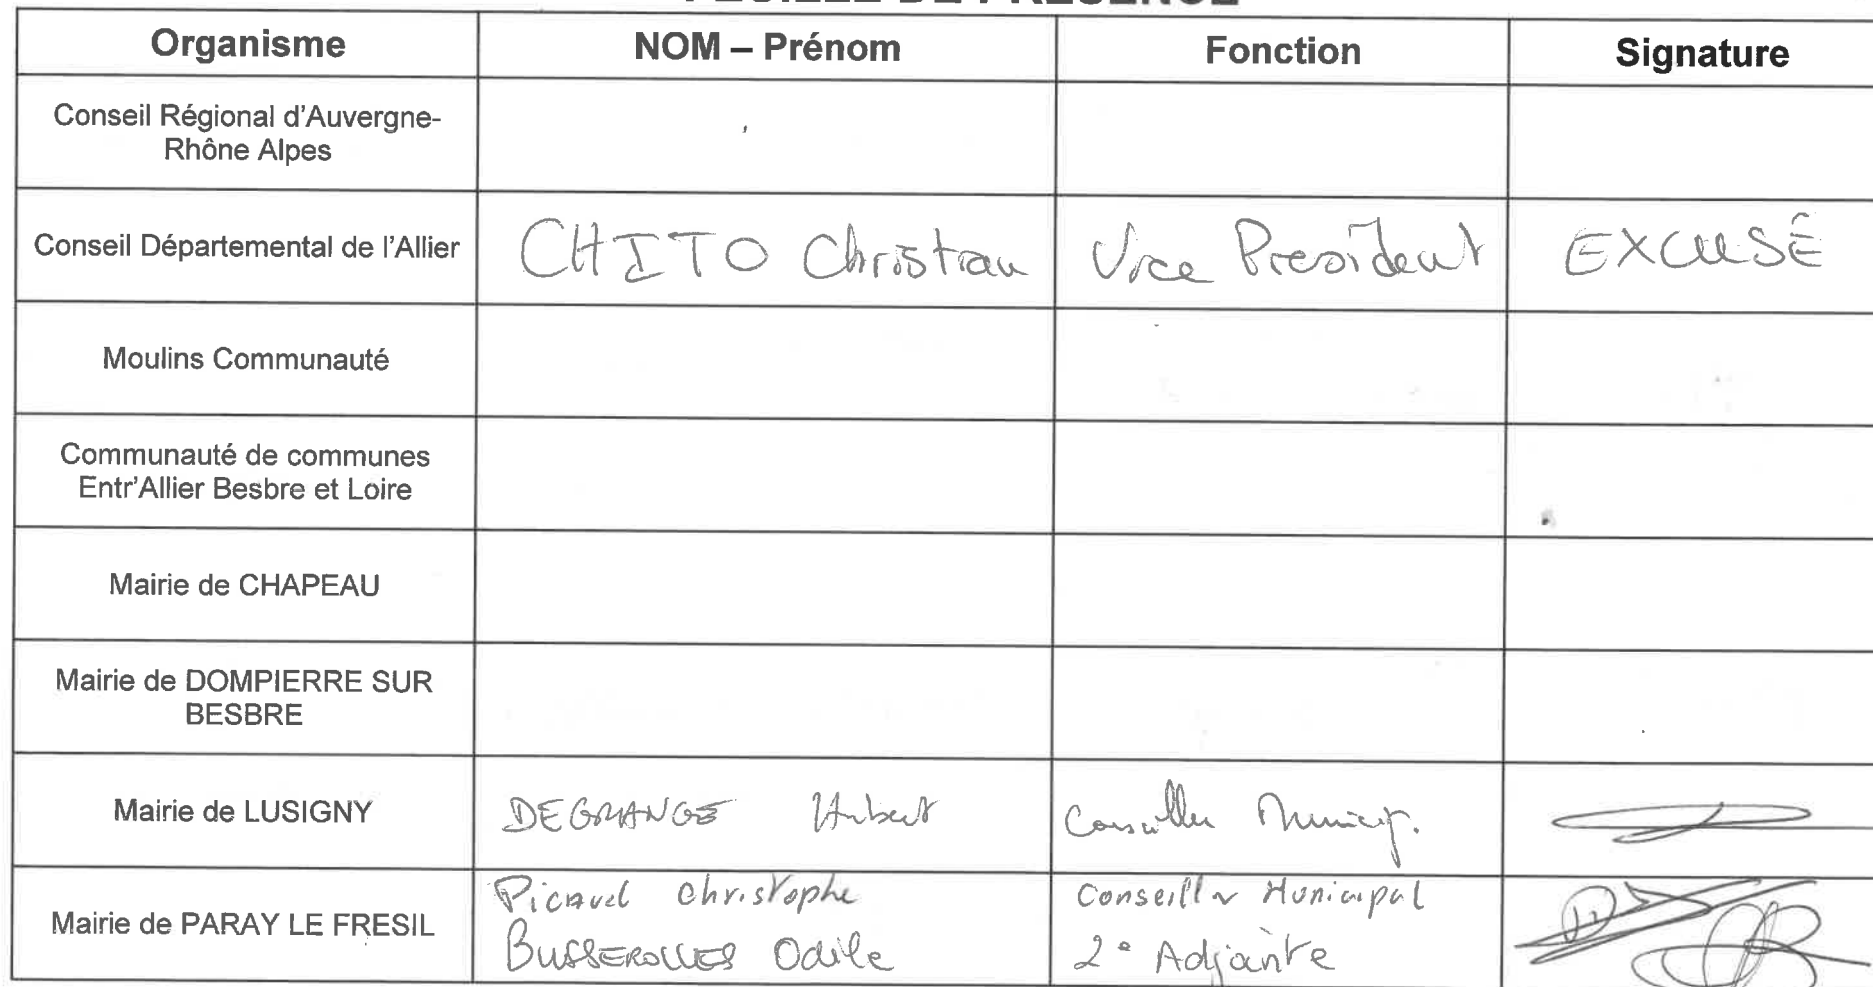 FEUILLE DE PRÉSENCE
Organisme NOM – Prénom Fonction Signature
Conseil Régional d'Auvergne-
Rhône Alpes
Conseil Départemental de l'Allier CHITO Christian Vice President EXCUSÉ
Moulins Communauté
Communauté de communes
Entr'Allier Besbre et Loire
Mairie de CHAPEAU
Mairie de DOMPIERRE SUR
BESBRE
Mairie de LUSIGNY DEGRANGE Hubert Conseiller Municip.
Mairie de PARAY LE FRESIL
Christophe Conseiller Municipal
BUSSEROLLES Odile 2e Adjointe